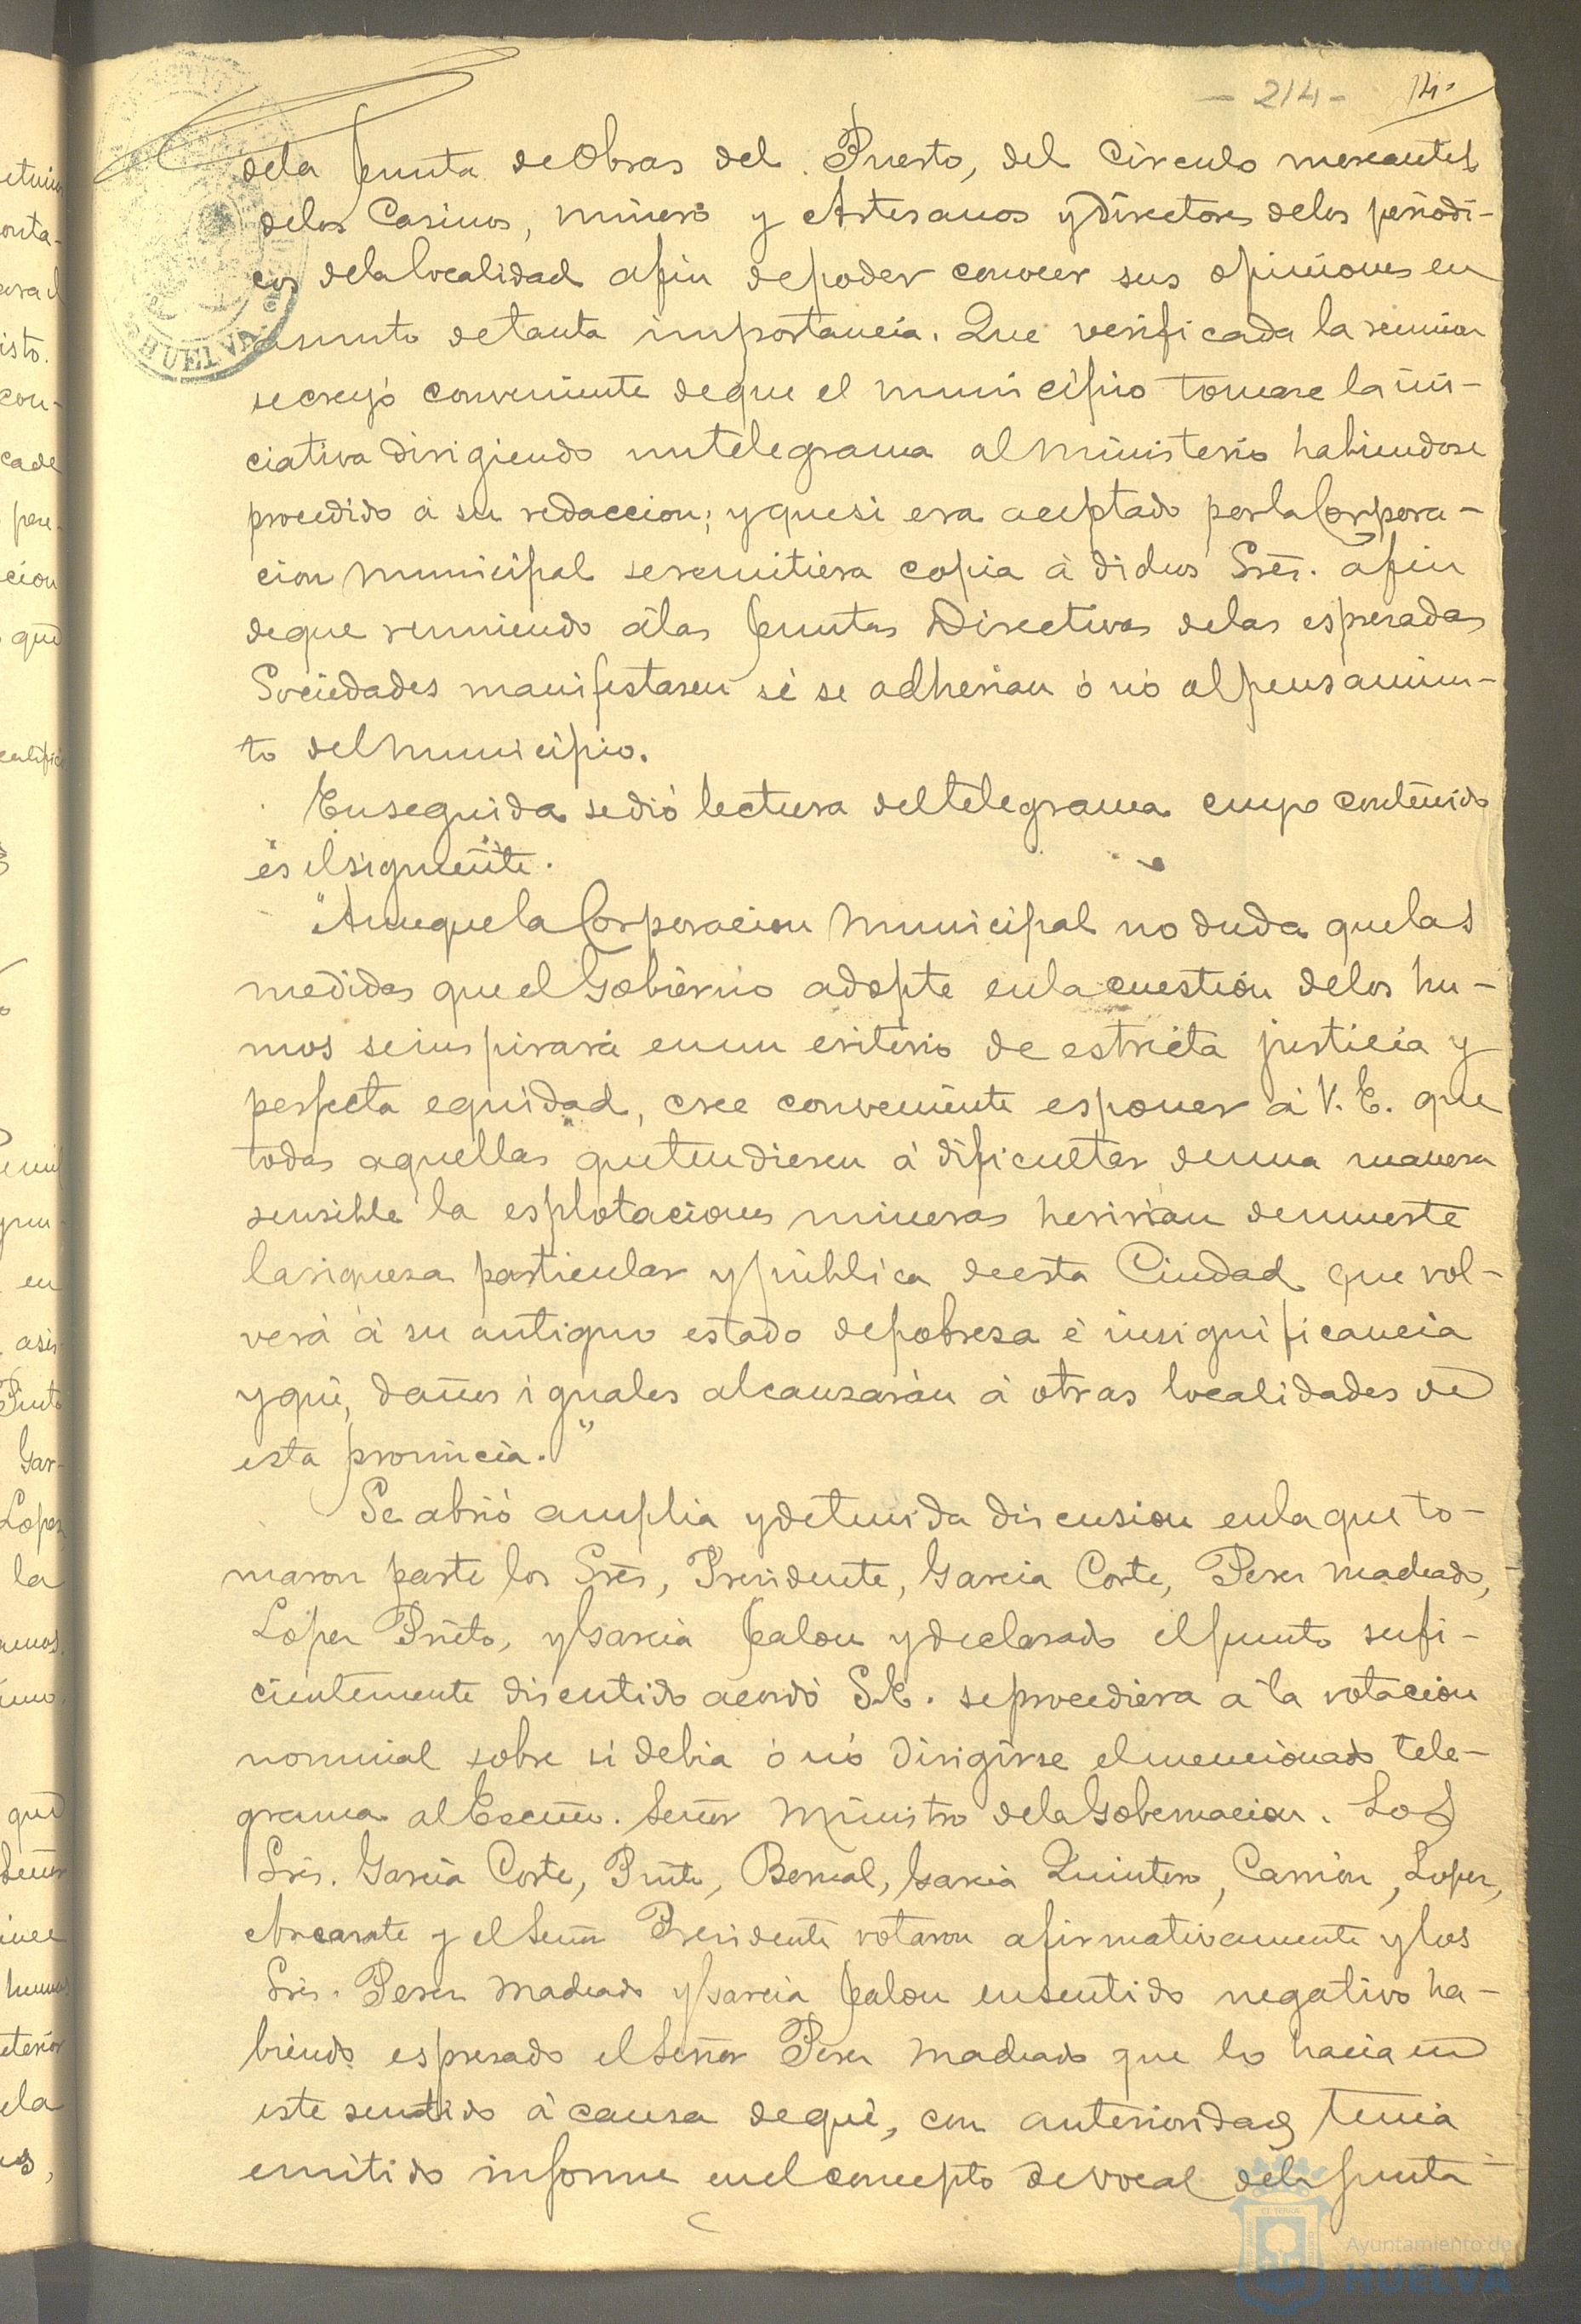 - 214 - 14.
dela Junta de Obras del Puerto, del Circulo mercantil
delos Casinos, minero y Artesanos y Directores delos periodi-
cos dela localidad afin depoder conocer sus opiniones en
asunto detanta importancia. Que verificada la reunion
secreyó conveniente deque el municipio tomase la ini-
ciativa dirigiendo untelegrama al Ministerio habiendose
procedido á su redaccion; y quesi era aceptado porla Corpora-
cion Municipal seremitiera copia á dichos Sres. afin
deque reuniendo álas Juntas Directivas delas espresadas
Sociedades manifestasen si se adherian ó nó al pensamien-
to del Municipio.
Enseguida sedió lectura deltelegrama cuyo contenido
es elsiguiente.
"Aunquela Corporacion Municipal no duda quelas
medidas queel Gobierno adopte enla cuestion delos hu-
mos seinspirará enun criterio de estricta justicia y
perfecta equidad, cree conveniente esponer á V. E. que
todas aquellas quetendiesen á dificultar deuna manera
sensible la esplotaciones mineras heririan demuerte
lariqueza particular y pública deesta Ciudad que vol-
verá á su antiguo estado depobreza é insignificancia
y que, daños iguales alcanzarán á otras localidades de
esta provincia."
Se abrió amplia y detenida discusion enla que to-
maron parte los Sres, Presidente, Garcia Corte, Perez Machado,
Lopez Prieto, y Garcia Jalon y declarado el punto sufi-
cientemente discutido acordó S.E. seprocediera á la votacion
nominal sobre si debia ó nó dirigirse elmencionado tele-
grama al Excmo. Señor Ministro dela Gobernacion. Los
Sres. Garcia Corte, Prieto, Bernal, Garcia Quintero, Carrion, Lopez,
Azcarate y el Señor Presidente votaron afirmativamente y los
Sres. Perez Machado y Garcia Jalon ensentido negativo ha-
biendo espresado el Señor Perez Machado que lo hacia en
este sentido á causa deque, con anterioridad tenia
emitido informe enel concepto devocal dela Junta
HUELVA
Ayuntamiento de
HUELVA